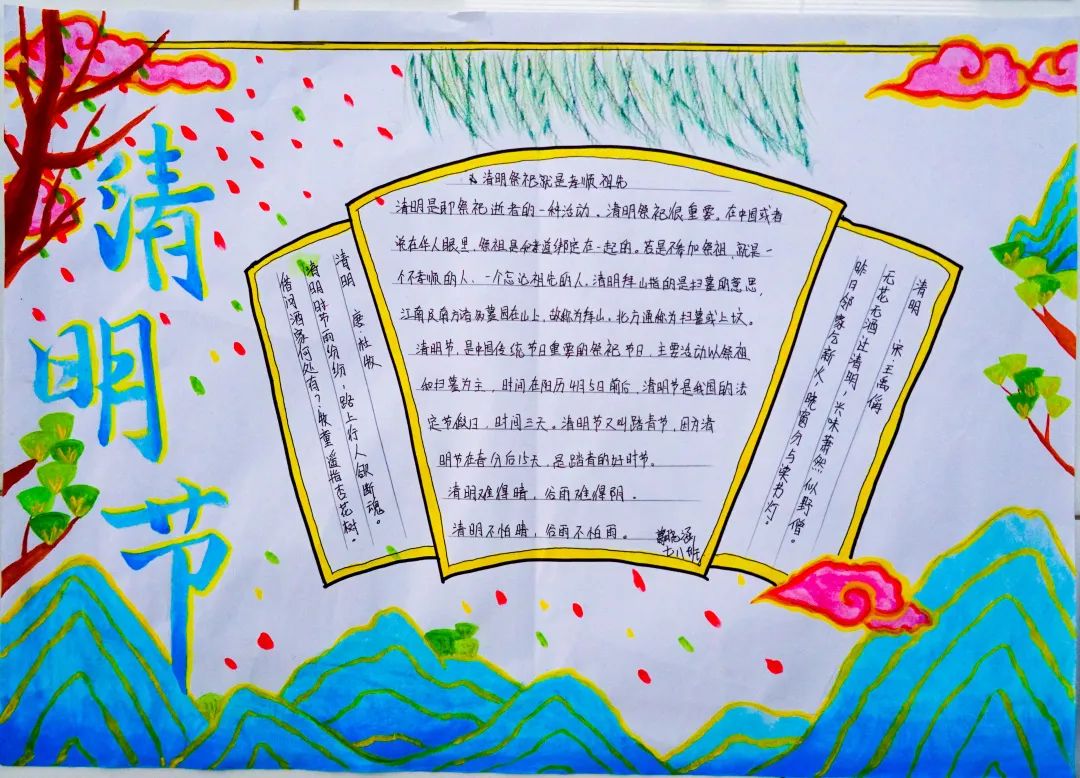 清明节
清明 唐·杜牧
清明时节雨纷纷，路上行人欲断魂。
借问酒家何处有？牧童遥指杏花树。
清明祭祀就是孝顺祖先
清明是即祭祀逝者的一种活动。清明祭祀很重要。在中国或者
说在华人眼里，祭祖是和孝道绑定在一起的。若是不参加祭祖，就是一
个不孝顺的人、一个忘记祖先的人。清明拜山指的是扫墓的意思，
江南及南方诸多墓园在山上，故称为拜山。北方通称为扫墓或上坟。
清明节，是中国传统节日重要的祭祀节日，主要活动以祭祖
和扫墓为主，时间在阳历4月5日前后，清明节是我国的法
定节假日，时间三天。清明节又叫踏青节，因为清
明节在春分后15天，是踏青的好时节。
清明难得晴，谷雨难得阴。
清明不怕晴，谷雨不怕雨。
清明 宋 王禹偁
无花无酒过清明，兴味萧然似野僧。
昨日邻家乞新火，晓窗分与读书灯。